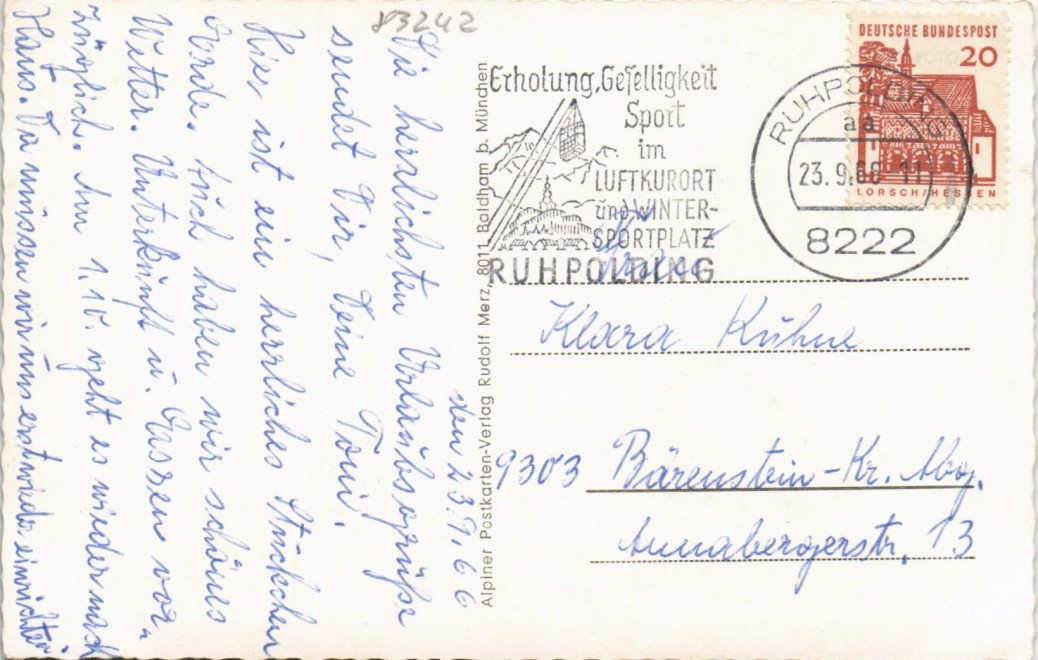 83242
den 23.9.66
Die herrlichsten Urlaubsgrüße
sendet Dir, Deine Toni.
Hier ist ein herrliches Stückchen
Erde. Auch haben wir schönes
Wetter. Unterkunft u. Essen vor-
züglich. Am 1.10. geht es wieder nach
Haus. Da müssen wir uns erst wieder einrichten
Alpiner Postkarten-Verlag Rudolf Merz, 8011 Baldham b. München
Erholung, Geselligkeit
Sport
im
LUFTKURORT
und WINTER-
SPORTPLATZ
RUHPOLDING
RUHPOLDING
aa
23.9.66-11
8222
DEUTSCHE BUNDESPOST
20
LORSCH/HESSEN
Klara Kühne
9303 Bärenstein-Kr. Abg.
Annabergerstr. 13